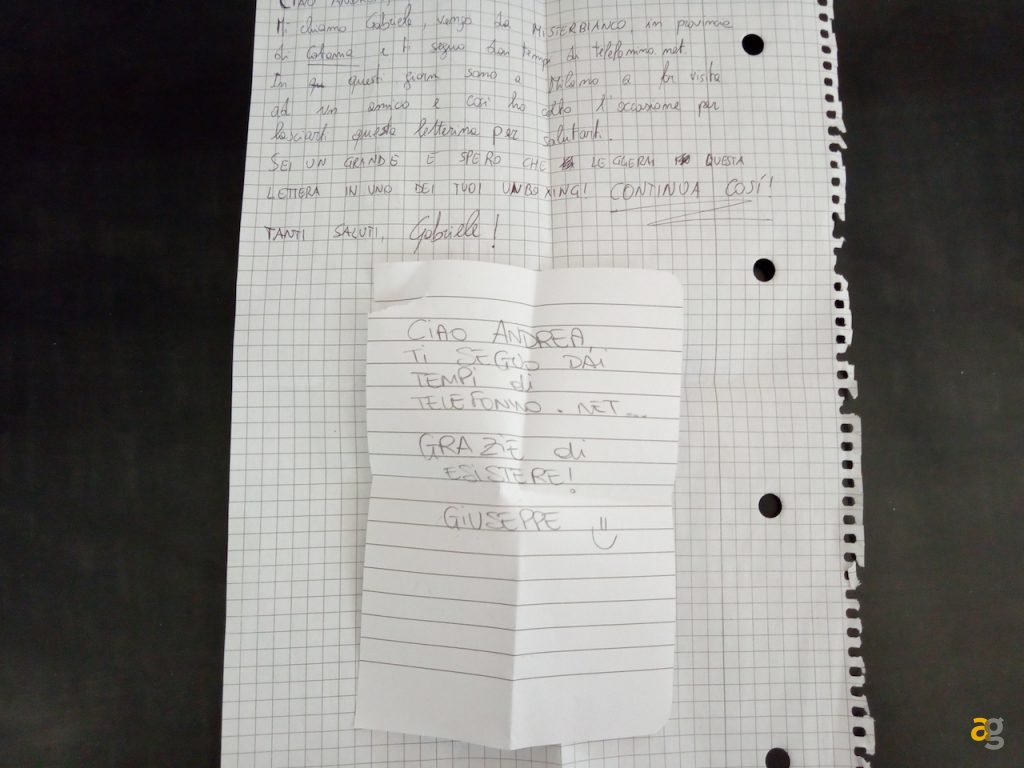 CIAO ANDREA,
Mi chiamo Gabriele, vengo da MISTERBIANCO, in provincia
di Catania e ti seguo dai tempi di telefonino.net.
In questi giorni sono a Milano a far visita
ad un amico e così ho colto l'occasione per
lasciarti questa letterina per salutarti.
SEI UN GRANDE E SPERO CHE LEGGERAI QUESTA
LETTERA IN UNO DEI TUOI UNBOXING! CONTINUA COSÍ!
TANTI SALUTI, Gabriele!
CIAO ANDREA,
TI SEGUO DAI
TEMPI di
TELEFONINO.NET...
GRAZIE di
ESISTERE!
GIUSEPPE
ag